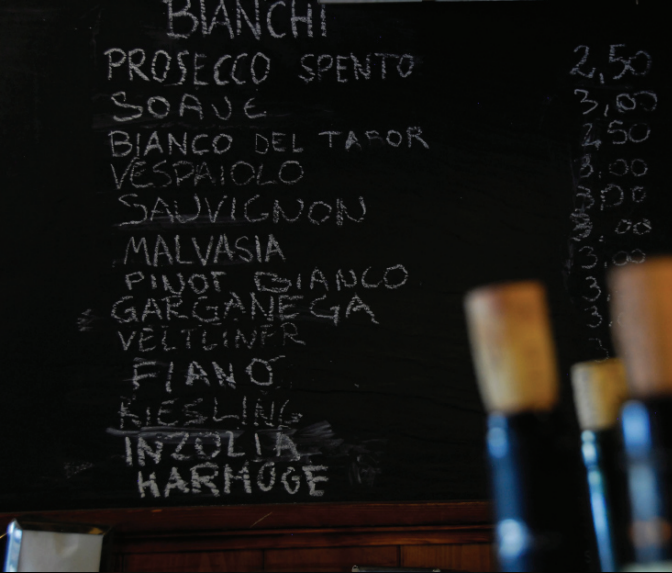 BIANCHI
PROSECCO SPENTO 2,50
SOAVE 3,00
BIANCO DEL TABOR 2,50
VESPAIOLO 3,00
SAUVIGNON 3,00
MALVASIA 3,00
PINOT BIANCO 3,
GARGANEGA 3,
VELTLINER 3
FIANO
RIESLING
INZOLIA
HARMOGE